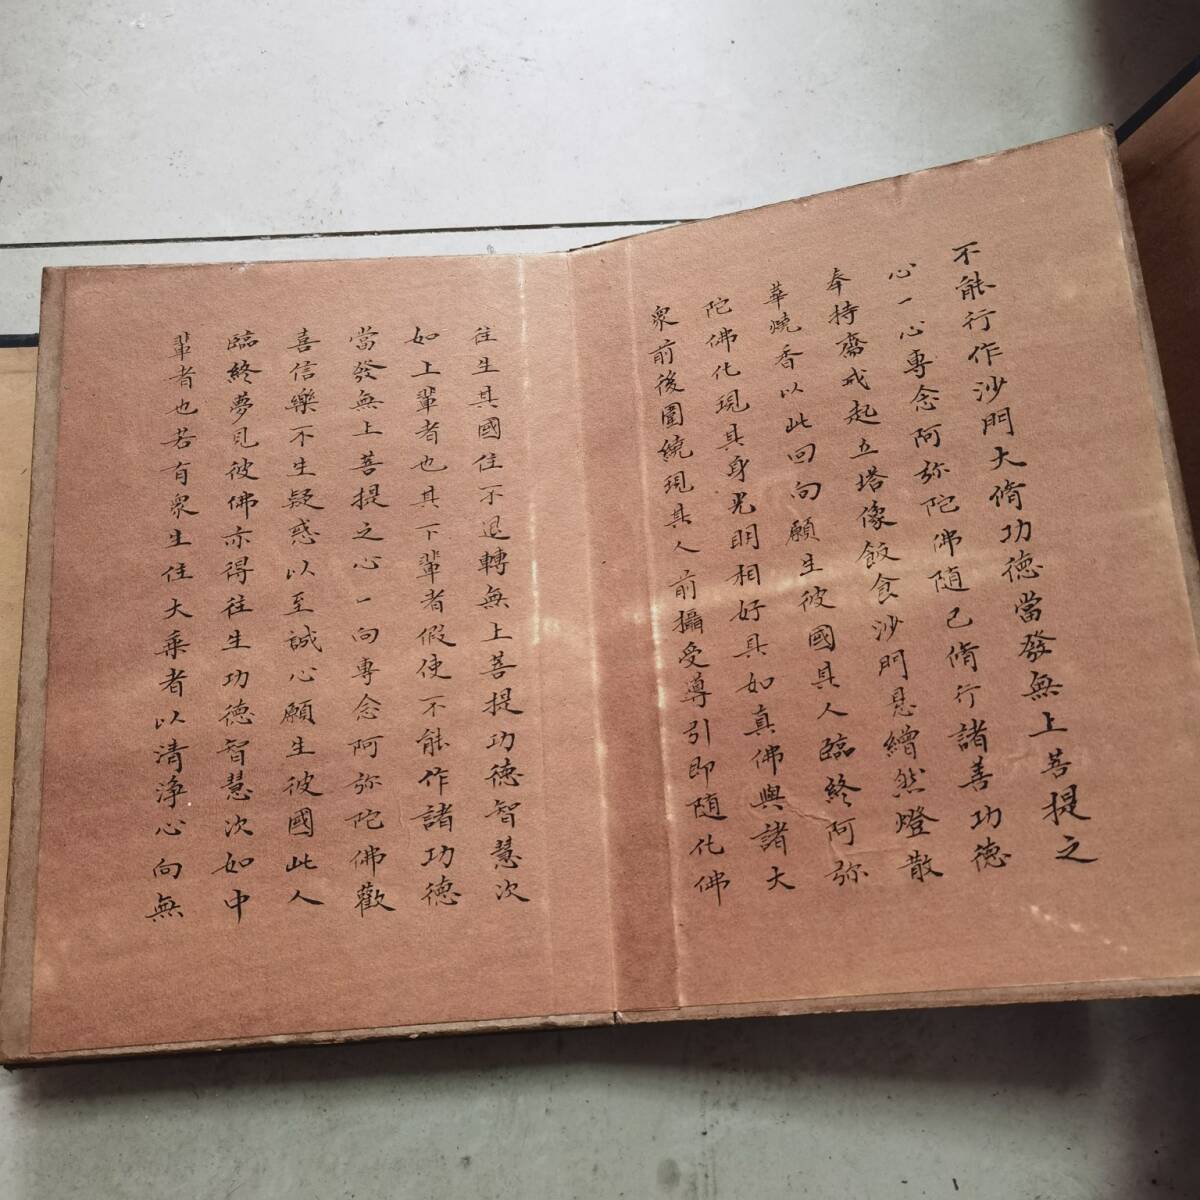 不能行作沙門大脩功德當發無上菩提之
心一心專念阿弥陀佛随己脩行諸善功德
奉持齋戒起立塔像飯食沙門悬繒然燈散
華燒香以此回向願生彼國其人臨終阿弥
陀佛化現其身光明相好具如真佛與諸大
衆前後圍繞現其人前攝受導引即随化佛
往生其國住不退轉無上菩提功德智慧次
如上輩者也其下輩者假使不能作諸功德
當發無上菩提之心一向專念阿弥陀佛歡
喜信樂不生疑惑以至誠心願生彼國此人
臨終夢見彼佛亦得往生功德智慧次如中
輩者也若有衆生住大乘者以清淨心向無